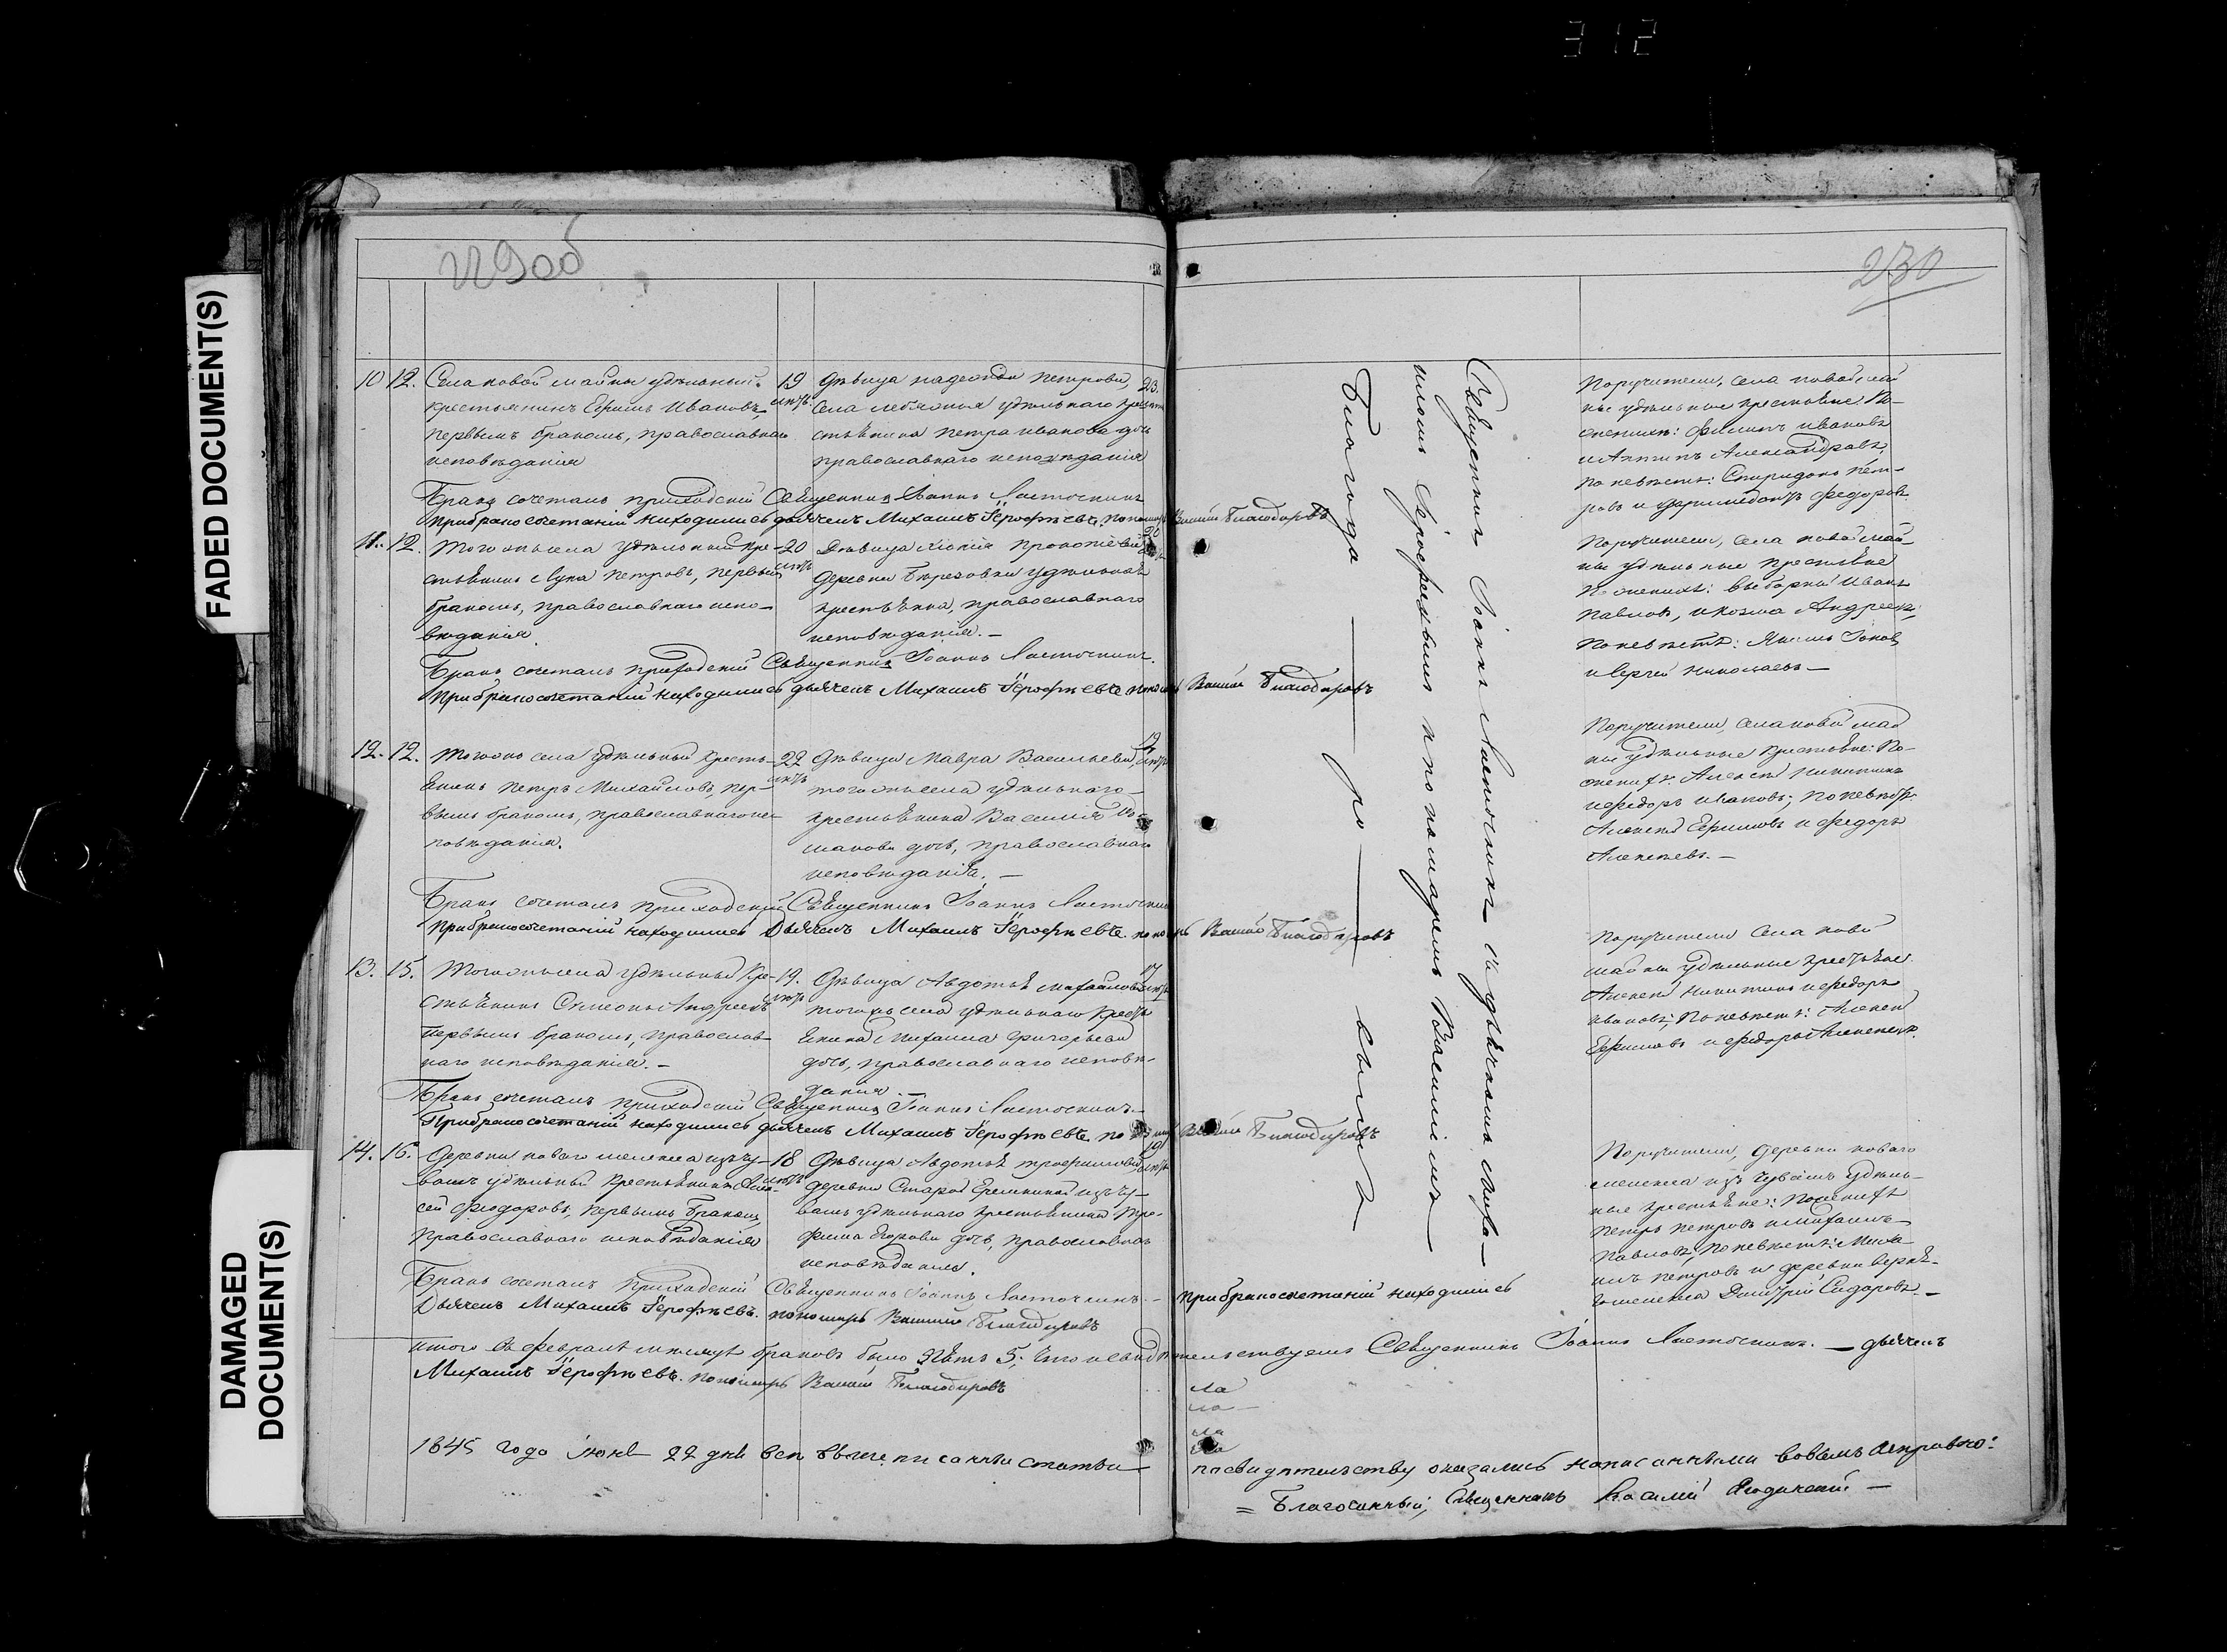 312
FADED DOCUMENT(S)
DAMAGED
DOCUMENT(S)
230
10 12. Села новой майны удѣльный
крестьянинъ Ефимъ Ивановъ,
первымъ бракомъ, православнаго
исповѣданія
19
лѣтъ
Дѣвица надежда петрова,
села удѣльнаго кре
стьянина петра иванова дочь
православнаго исповѣданія
23.
Поручители, села новой май
ны удѣльные крестьяне: По
женихѣ: филипъ ивановъ
и Антипъ Александровъ,
по невѣстѣ: Спиридонъ пет-
ровъ и федоровъ
Бракъ сочеталъ приходскій Священникъ Іоаннъ Ласточкинъ
при бракосочетаніи находились дьячекъ Михаилъ Іерофѣевъ. пономарь Василій Благодаровъ
11. 12. тогожъ села удѣльный кре-
стьянинъ Лука петровъ, первымъ
бракомъ, православнаго испо-
вѣданія.
20
лѣтъ
Дѣвица прокопіева
деревни Березовки удѣльная
крестьянка, православнаго
исповѣданія. —
Поручители, села новой май-
ны удѣльные крестьяне
По женихѣ: выборный Иванъ
павловъ, и козма Андреевъ;
по невѣстѣ:
и Сергей николаевъ —
Бракъ сочеталъ приходскій Священникъ Іоаннъ Ласточкинъ.
при бракосочетаніи находились дьячекъ Михаилъ Іерофѣевъ пономарь Василій Благодаровъ
12. 12. тогожъ села удѣльный кресть-
янинъ петръ Михайловъ, пер-
вымъ бракомъ, православнаго ис
повѣданія.
22
лѣтъ
Дѣвица Мавра Васильева,
тогожъ села удѣльнаго
крестьянина Василія
дочь, православнаго
исповѣданія. —
19
лѣтъ
Поручители, села новой май
ны удѣльные крестьяне: По
женихѣ: Алексей никитинъ
и федоръ ивановъ; по невѣстѣ:
Алексей Ефимовъ и федоръ
Алексеевъ. —
Бракъ сочеталъ приходскій Священникъ Іоаннъ Ласточкинъ
при бракосочетаніи находились Дьячекъ Михаилъ Іерофѣевъ. пономарь Василій Благодаровъ
13. 15. тогожъ села удѣльный кре-
стьянинъ Симеонъ Андреевъ
первымъ бракомъ, православ-
наго исповѣданія. —
19.
лѣтъ
Дѣвица Авдотья михайлова
тогожъ села удѣльнаго кресть
янина Михаила Григорьева
дочь, православнаго исповѣ-
данія. —
лѣтъ
Поручители села новой
майны удѣльные крестьяне
Алексей никитинъ и федоръ
ивановъ; по невѣстѣ: Алексей
Ефимовъ и федоръ Алексеевъ.
Бракъ сочеталъ приходскій Священникъ Іоаннъ Ласточкинъ.
При бракосочетаніи находились дьячекъ Михаилъ Іерофѣевъ. пономарь Василій Благодаровъ
14. 16. Деревни новаго изъ чу-
вашъ удѣльный крестьянинъ Алек
сей Федоровъ, первымъ бракомъ,
православнаго исповѣданія
18
лѣтъ
Дѣвица Авдотья трофимова,
деревни Старой изъ чу-
вашъ удѣльнаго крестьянина тро-
фима Егорова дочь, православнаго
исповѣданія.
19
лѣтъ
Поручители, деревни новаго
изъ чувашъ удѣль-
ные крестьяне: По женихѣ
петръ петровъ и михаилъ
павловъ; по невѣстѣ: Миха
илъ петровъ и деревни верхня-
го Дмитрій Сидоровъ. —
Бракъ сочеталъ Приходскій Священникъ Іоаннъ Ласточкинъ. — при бракосочетаніи находились
Дьячекъ Михаилъ Іерофѣевъ. пономарь Василій Благодаровъ
Священникъ Іоаннъ Ласточкинъ съ дьячкомъ миха-
иломъ Іерофеевымъ и пономаремъ Василіемъ
Благода — ро — вымъ
итого въ февралѣ мѣсяцѣ браковъ было пять 5. Въ томъ свидѣтельствуемъ Священникъ Іоаннъ Ласточкинъ. — дьячекъ
Михаилъ Іерофѣевъ. пономарь Василій Благодаровъ
1845 года іюня 22 дня всѣ вышеписанныя статьи по свидѣтельству оказались написанными во всемъ исправно:
= Благочинный, Священникъ Василій